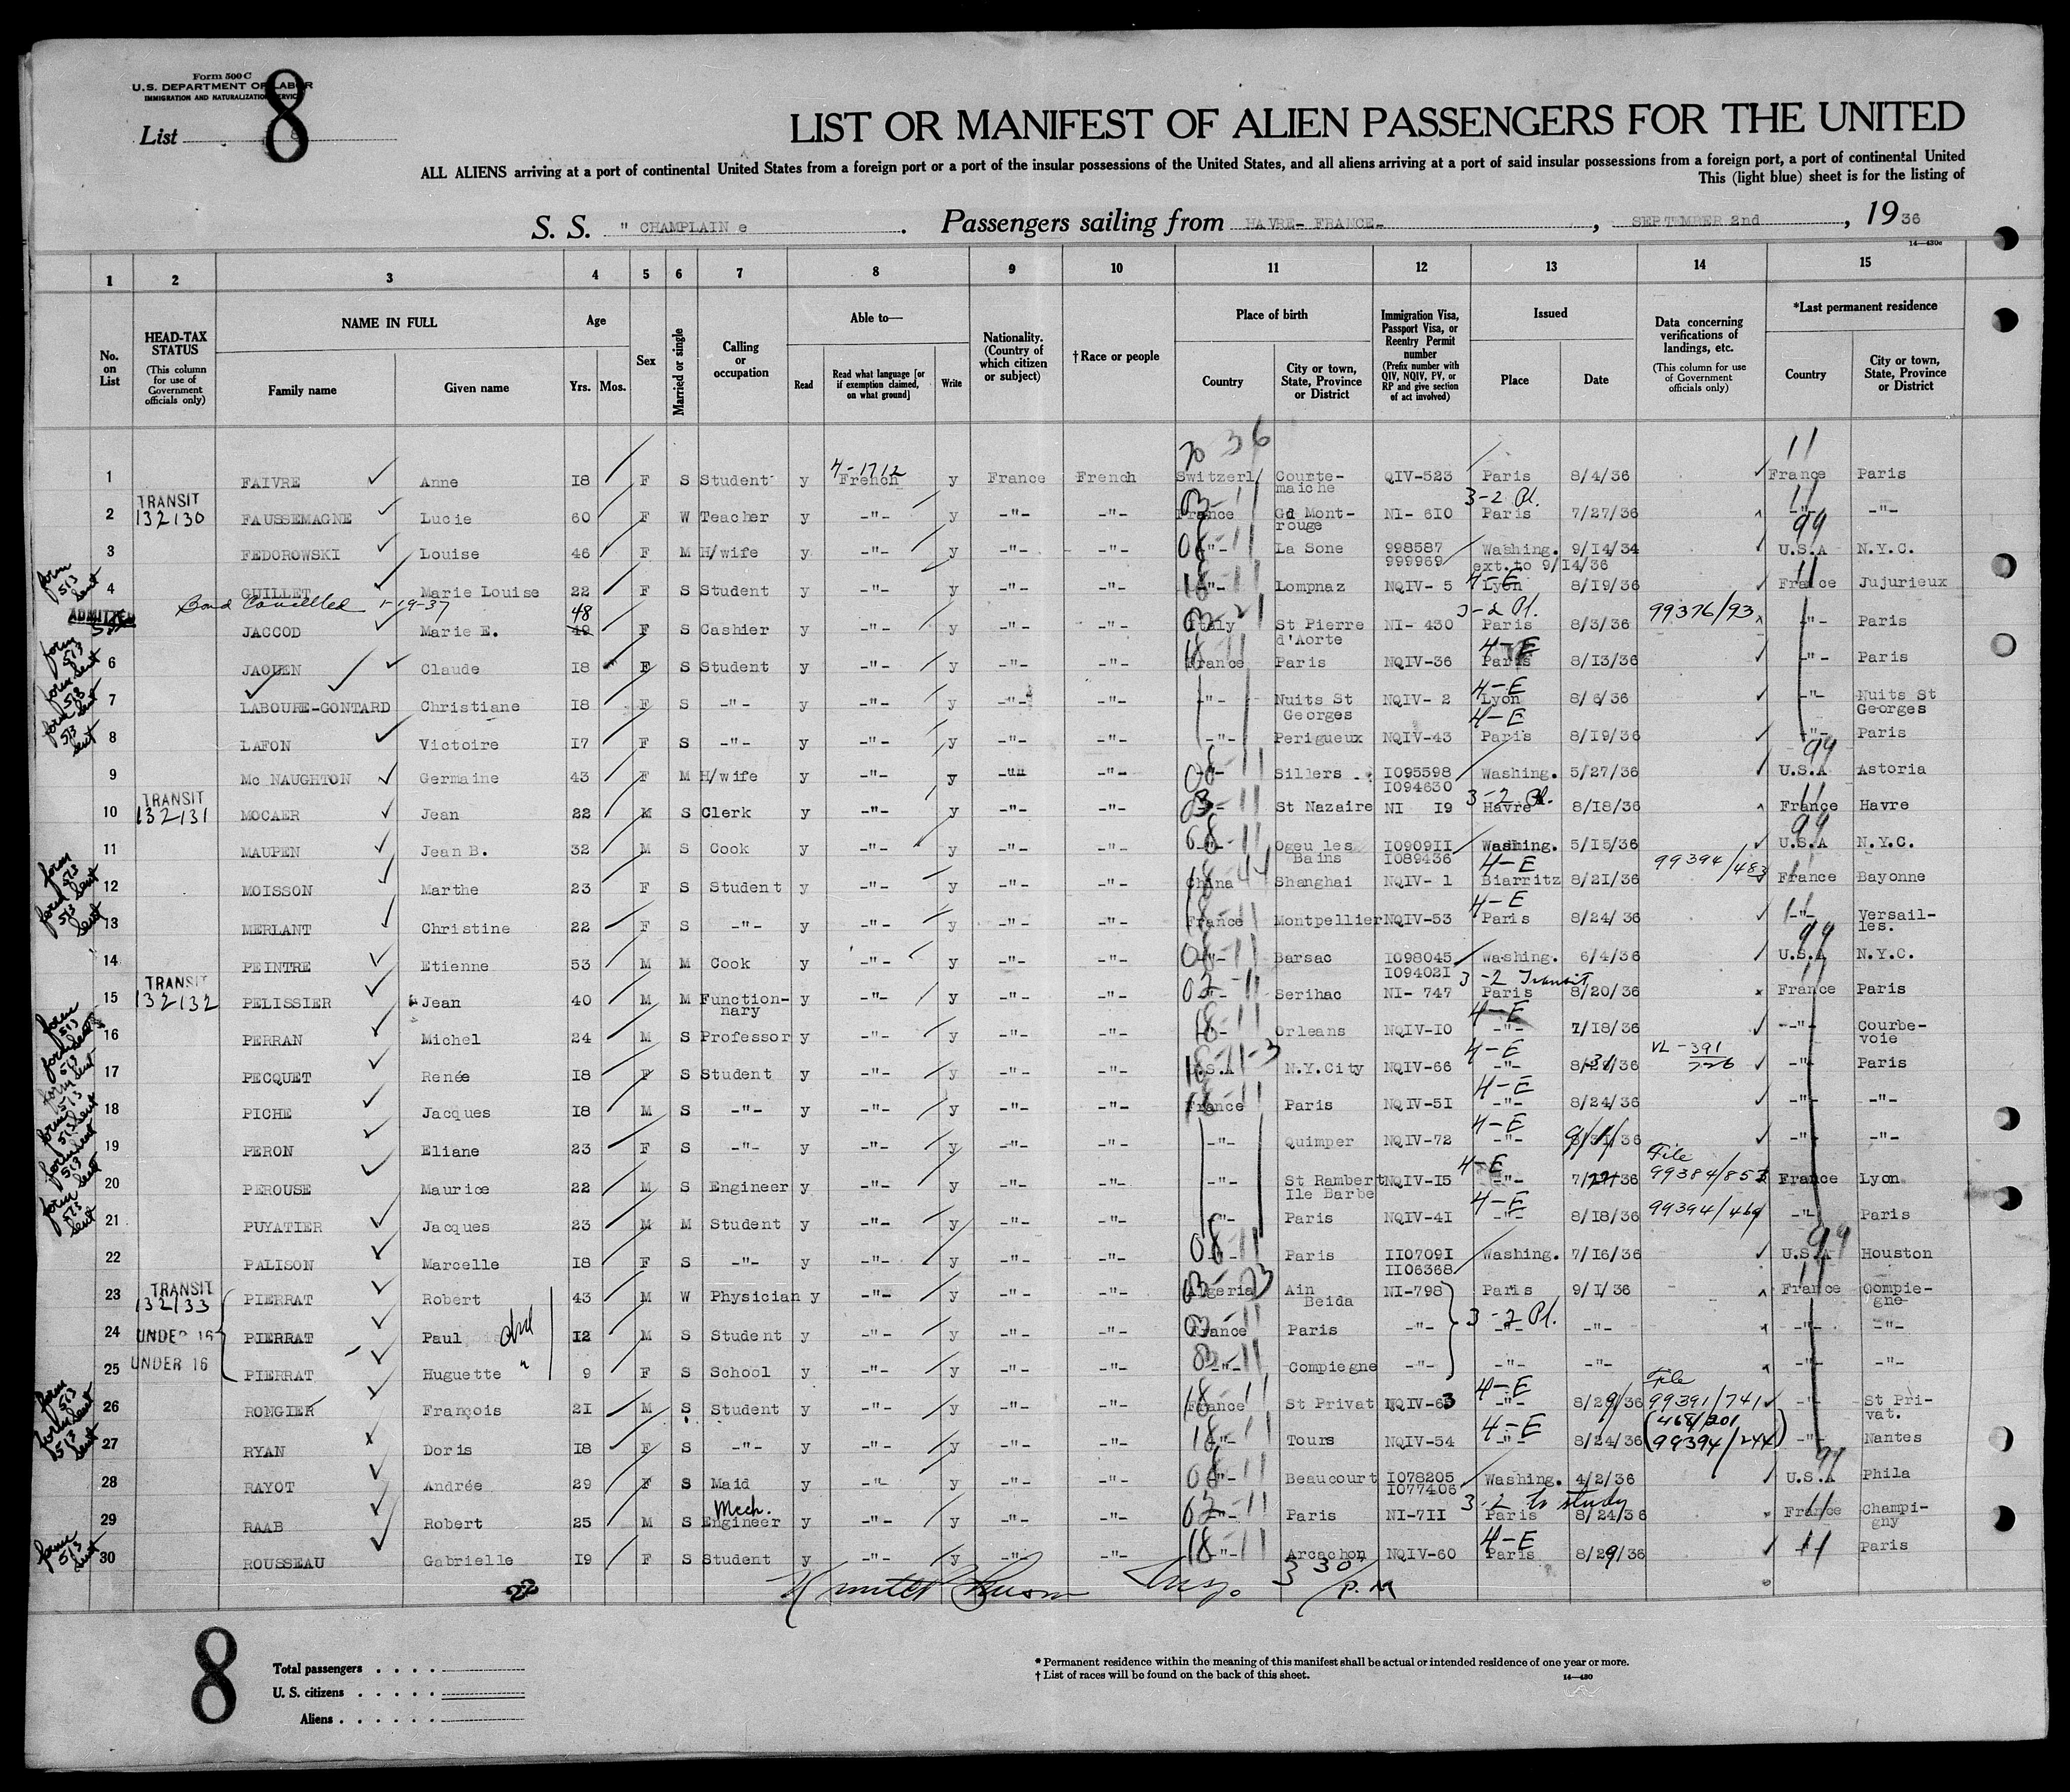 Form 500 C
U.S. DEPARTMENT OF LABOR
IMMIGRATION AND NATURALIZATION SERVICE
List 8
LIST OR MANIFEST OF ALIEN PASSENGERS FOR THE UNITED
ALL ALIENS arriving at a port of continental United States from a foreign port or a port of the insular possessions of the United States, and all aliens arriving at a port of said insular possessions from a foreign port, a port of continental United
This (light blue) sheet is for the listing of
S. S. " CHAMPLAIN e . Passengers sailing from HAVRE- FRANCE- , SEPTEMBER 2nd , 1936
14—430c
1 2 3 4 5 6 7 8 9 10 11 12 13 14 15
No. on List
HEAD-TAX STATUS (This column for use of Government officials only)
NAME IN FULL
Family name Given name
Age
Yrs. Mos.
Sex
Married or single
Calling or occupation
Able to—
Read
Read what language [or if exemption claimed, on what ground]
Write
Nationality. (Country of which citizen or subject)
†Race or people
Place of birth
Country
City or town, State, Province or District
Immigration Visa, Passport Visa, or Reentry Permit number (Prefix number with QIV, NQIV, PV, or RP and give section of act involved)
Issued
Place Date
Data concerning verifications of landings, etc. (This column for use of Government officials only)
*Last permanent residence
Country
City or town, State, Province or District
20 36 11
1 FAIVRE Anne 18 F S Student y 4-1712 French y France French Switzerl/ Courte-maiche QIV-523 Paris 8/4/36 France Paris
2 TRANSIT 132130 FAUSSEMAGNE Lucie 60 F W Teacher y -"- y -"- -"- 03-11 France Gd Mont-rouge NI- 610 3-2 Pl. Paris 7/27/36 11 -"- -"-
3 FEDOROWSKI Louise 46 F M H/wife y -"- y -"- -"- 08-11 -"- La Sone 998587 999969 Washing. 9/14/34 ext.to 9/14/36 99 U.S.A N.Y.C.
form 513 sent 4 GUILLET Marie Louise 22 F S Student y -"- y -"- -"- 18-11 -"- Lompnaz NQIV- 5 4-E Lyon 8/19/36 11 France Jujurieux
ADMITTED Bond Cancelled 1-19-37
JACCOD Marie E. 48 49 F S Cashier y -"- y -"- -"- 03-21 Italy St Pierre d'Aorte NI- 430 3-2 Pl. Paris 8/3/36 99376/93 -"- Paris
form 513 sent 6 JAOUEN Claude 18 F S Student y -"- y -"- -"- 18-11 France Paris NQIV-36 4-E Paris 8/13/36 -"- Paris
form 513 sent 7 LABOURE-GONTARD Christiane 18 F S -"- y -"- y -"- -"- -"- Nuits St Georges NQIV- 2 4-E Lyon 8/6/36 -"- Nuits St Georges
form 513 sent 8 LAFON Victoire 17 F S -"- y -"- y -"- -"- -"- Perigueux NQIV-43 4-E Paris 8/19/36 -"- Paris
9 Mc NAUGHTON Germaine 43 F M H/wife y -"- y -"- -"- 08-11 Sillers 1095598 1094630 Washing. 5/27/36 99 U.S.A Astoria
10 TRANSIT 132131 MOCAER Jean 22 M S Clerk y -"- y -"- -"- 03-11 St Nazaire NI 19 3-2 Pl. Havre 8/18/36 11 France Havre
11 MAUPEN Jean B. 32 M S Cook y -"- y -"- -"- 08-11 Ogeu les Bains 1090911 1089436 Washing. 5/15/36 99 U.S.A N.Y.C.
form 513 sent 12 MOISSON Marthe 23 F S Student y -"- y -"- -"- 18-44 China Shanghai NQIV- 1 4-E Biarritz 8/21/36 99394/483 11 France Bayonne
form 513 sent 13 MERLANT Christine 22 F S -"- y -"- y -"- -"- 18-11 France Montpellier NQIV-53 4-E Paris 8/24/36 11 -"- Versail-les.
14 PEINTRE Etienne 53 M M Cook y -"- y -"- -"- 08-11 -"- Barsac 1098045 1094021 Washing. 6/4/36 99 U.S.A N.Y.C.
15 TRANSIT 132132 PELISSIER Jean 40 M M Function-nary y -"- y -"- -"- 02-11 -"- Serihac NI- 747 3-2 Transit Paris 8/20/36 11 France Paris
form 513 sent 16 PERRAN Michel 24 M S Professor y -"- y -"- -"- 18-11 Orleans NQIV-10 4-E -"- 7/18/36 -"- Courbe-voie
form 513 sent 17 PECQUET Renée 18 F S Student y -"- y -"- -"- 18-11-3 U.S.A N.Y.City NQIV-66 4-E -"- 8/31/36 VL-391 226 -"- Paris
form 513 sent 18 PICHE Jacques 18 M S -"- y -"- y -"- -"- 18-11 France Paris NQIV-51 4-E -"- 8/24/36 -"- -"-
form 513 sent 19 PERON Eliane 23 F S -"- y -"- y -"- -"- -"- Quimper NQIV-72 4-E -"- 9/1/36 -"- -"-
form 513 sent 20 PEROUSE Maurice 22 M S Engineer y -"- y -"- -"- -"- St Rambert Ile Barbe NQIV-15 4-E -"- File 99384/853 France Lyon
form 513 sent 21 PUYATIER Jacques 23 M M Student y -"- y -"- -"- -"- Paris NQIV-41 4-E -"- 8/18/36 99394/469 -"- Paris
22 PALISON Marcelle 18 F S -"- y -"- y -"- -"- 08-11 Paris 1107091 1106368 Washing. 7/16/36 99 U.S.A Houston
23 TRANSIT 132133 PIERRAT Robert 43 M W Physician y -"- y -"- -"- Algeria Ain Beida NI-798 Paris 9/1/36 11 France Compie-gne
24 UNDER 16 PIERRAT Paul chd 12 M S Student y -"- y -"- -"- 03-11 France Paris -"- 3-2 Pl. -"- -"- -"- -"-
25 UNDER 16 PIERRAT Huguette " 9 F S School y -"- y -"- -"- 03-11 -"- Compiegne -"- -"- -"- -"- -"-
form 513 sent 26 RONGIER François 21 M S Student y -"- y -"- -"- 18-11 France St Privat NQIV-63 4-E -"- 8/29/36 File 99391/741 -"- St Pri-vat.
form 513 sent 27 RYAN Doris 18 F S -"- y -"- y -"- -"- 18-11 -"- Tours NQIV-54 4-E -"- 8/24/36 (468/201 99394/244) -"- Nantes
28 RAYOT Andrée 29 F S Maid y -"- y -"- -"- 08-11 -"- Beaucourt 1078205 1077406 Washing. 4/2/36 99 U.S.A Phila
29 RAAB Robert 25 M S Mech. Engineer y -"- y -"- -"- 02-11 -"- Paris NI-711 3-2 to study Paris 8/24/36 11 France Champi-gny
form 513 sent 30 ROUSSEAU Gabrielle 19 F S Student y -"- y -"- -"- 18-11 -"- Arcachon NQIV-60 4-E Paris 8/29/36 11 Paris
22 Insp. 3 30/P.M
8
Total passengers
U. S. citizens
Aliens
* Permanent residence within the meaning of this manifest shall be actual or intended residence of one year or more.
† List of races will be found on the back of this sheet.
14—430